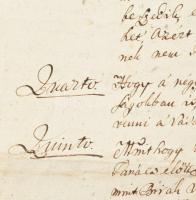 be szedik, e
ket Azért
nek nem
Quarto Hogy a négy
venni a Vá
Quinto Minthogy
Tanács előtt
mint Birák